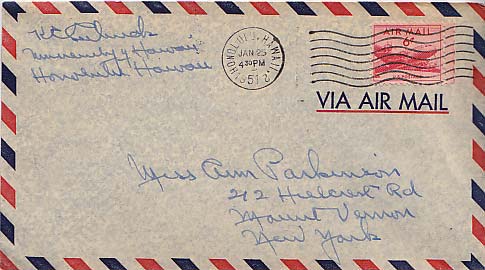 University of Hawaii
Honolulu Hawaii
HONOLULU, HAWAII
JAN 25
4 30 PM
1951
AIR MAIL
6¢
VIA AIR MAIL
Miss Ann Parkinson
212 Hillcrest Rd
Mount Vernon
New York